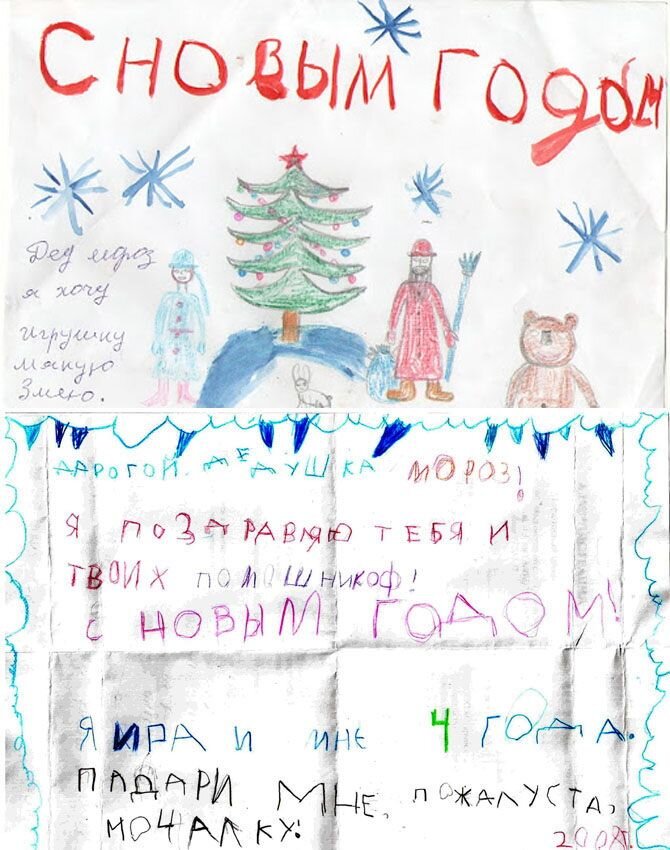 С НОВЫМ ГОДОМ
Дед мороз
я хочу
игрушку
мякую
Змею.
ДАРОГОЙ ДЕДУШКА МОРОЗ!
Я ПОЗДАРАВЛЯЮ ТЕБЯ И
ТВОИХ ПОМОШНИКОФ!
С НОВЫМ ГОДОМ!
Я ИРА И МНЕ 4 ГОДА.
ПАДАРИ МНЕ, ПОЖАЛУСТА,
МОЧАЛКУ!
2008г.